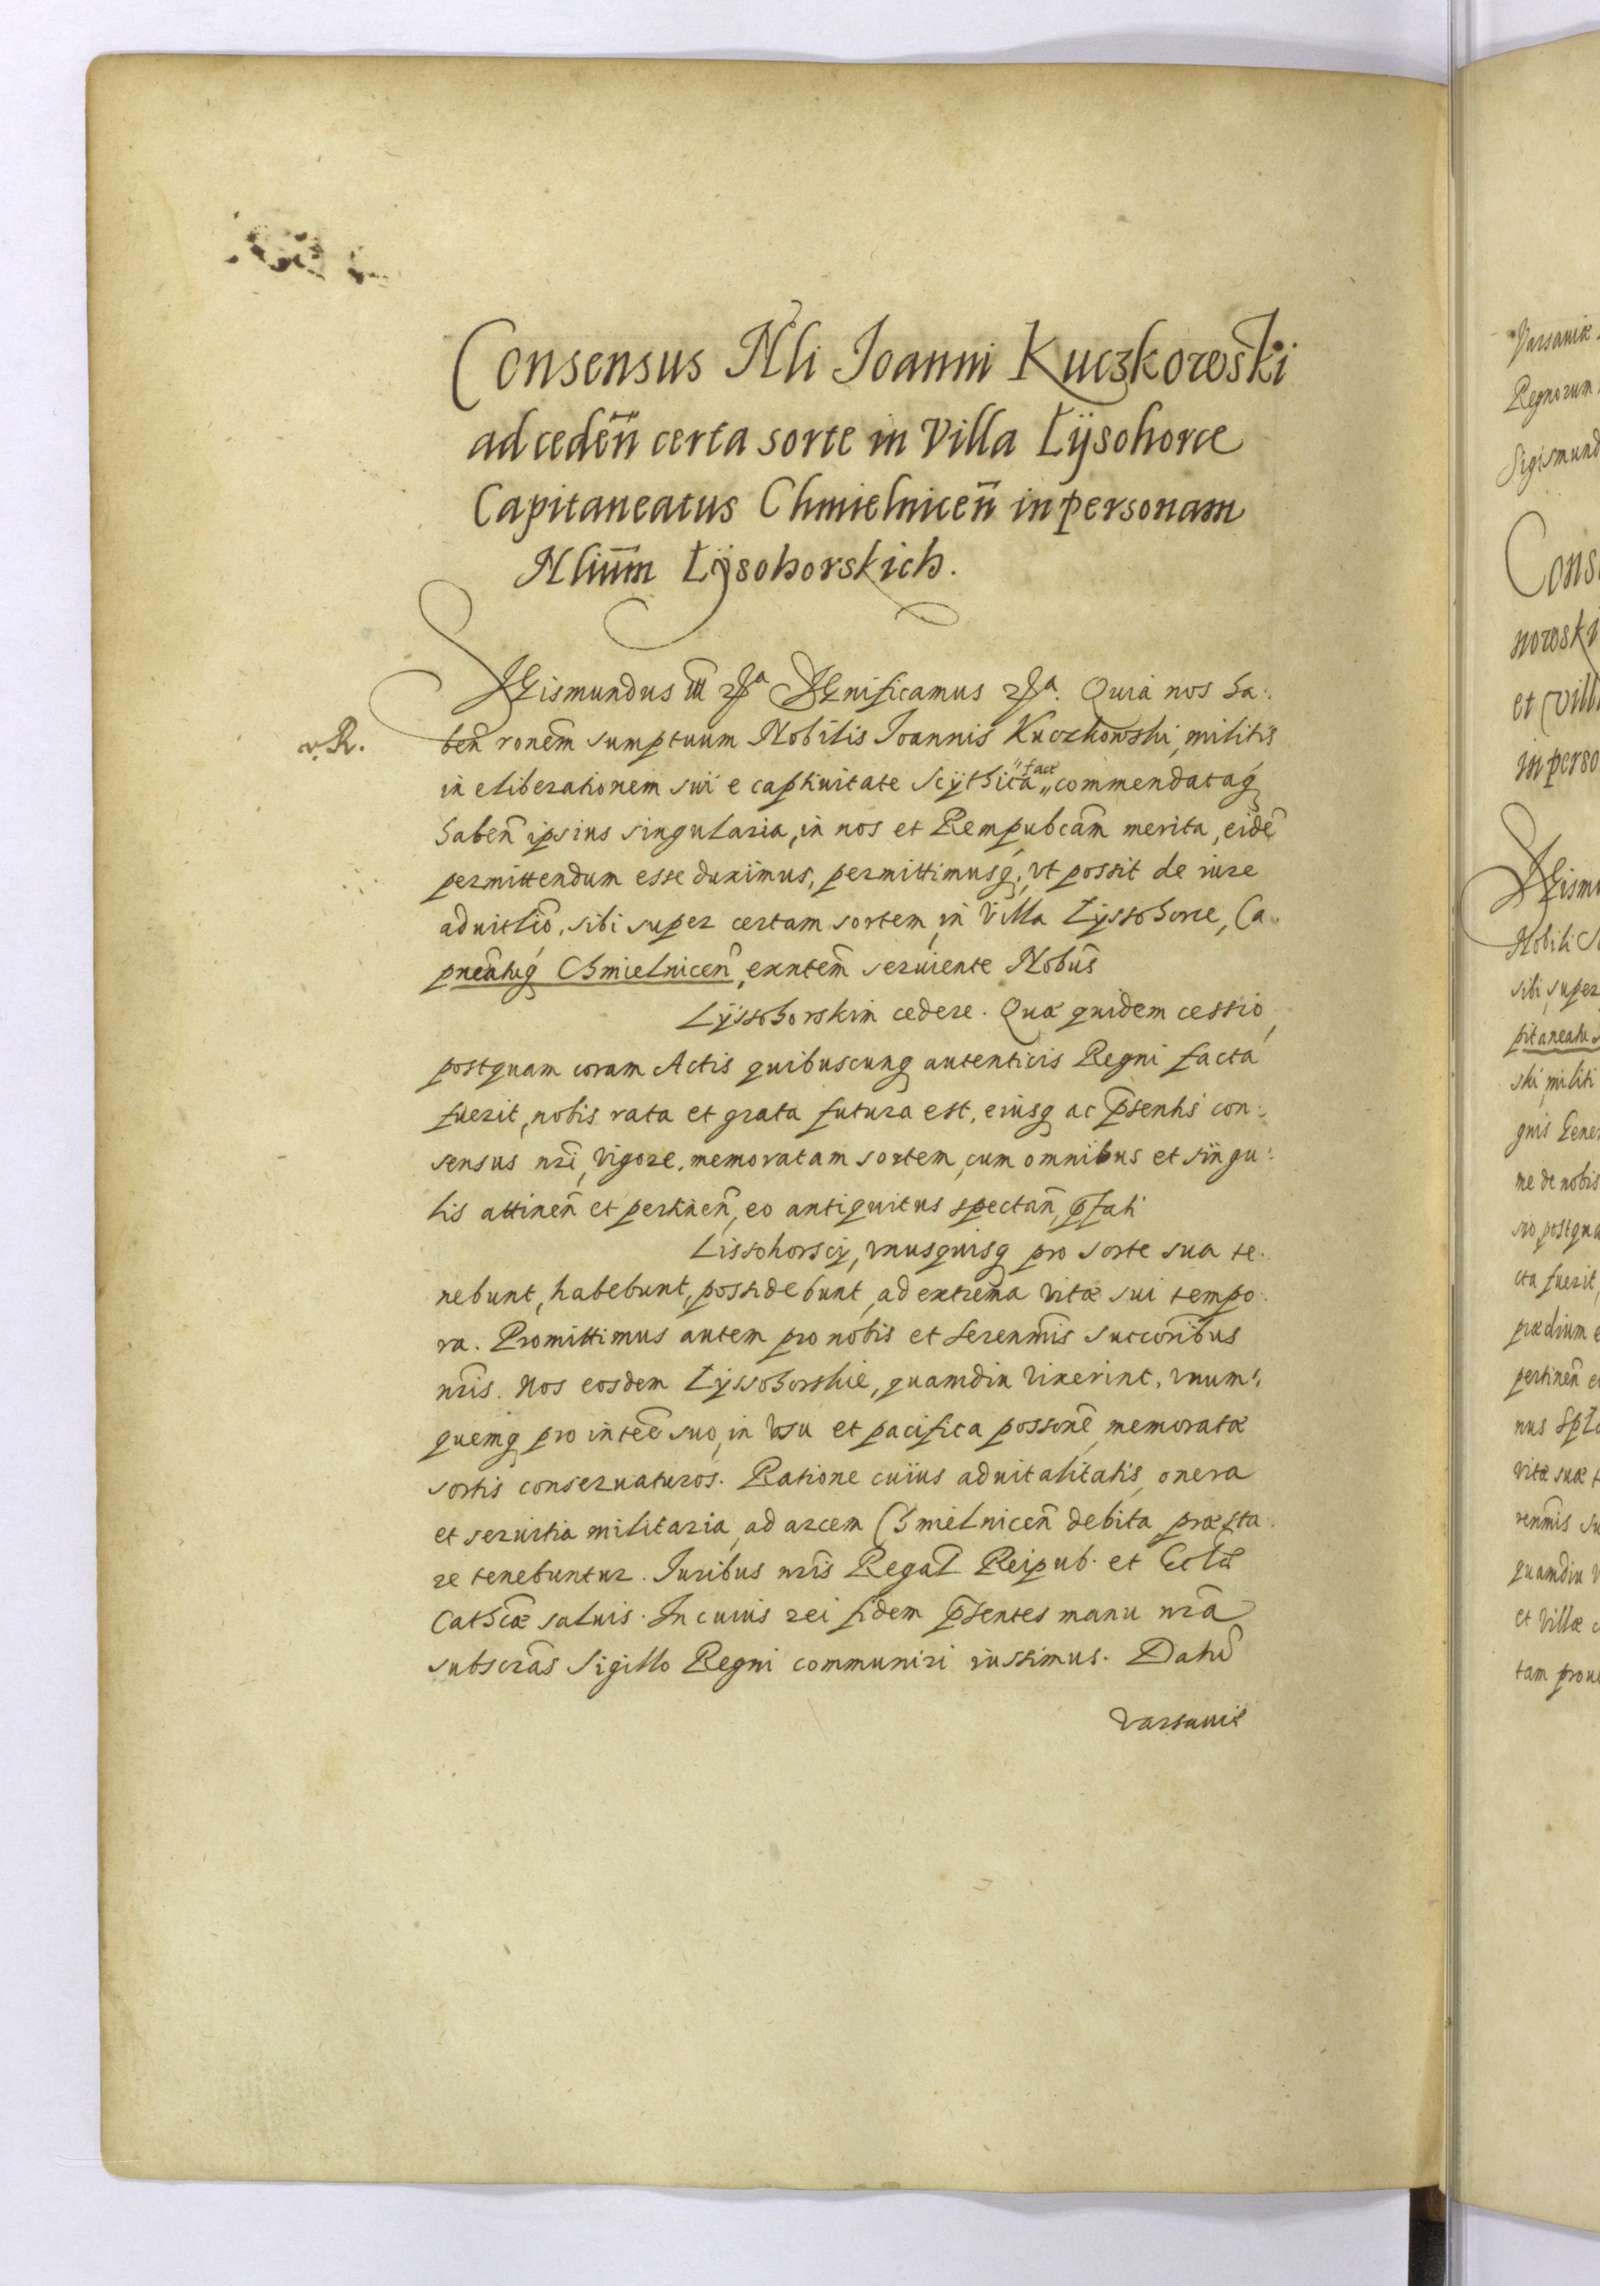 Consensus Nli Joanni Kuczkowski
ad ceden̄ certa sorte in Villa Łÿsohorce
Capitaneatus Chmielnicen̄ in personam
Nliūm Łÿsohorskich.
Sigismundus III Significamus Quia nos ha:
ben̄ ronem̄ sumptuum Nobilis Joannis Kuczkowski, militis
v. R.
in eliberationem sui e captiuitate Scÿthica „fact„ commendataq
haben̄ ipsius singularia, in nos et Rempubcam̄ merita, eidē
permittendum esse duximus, permittimusq, vt possit de iure
aduitlio, sibi super certam sortem, in Villa Łyssohorce, Ca:
pneatuq Chmielnicen̄, exntem̄ seruiente Nobūs
Lÿssohorskim cedere. Quæ quidem cessio,
postquam coram Actis quibuscunq autenticis Regni facta
fuerit, nobis rata et grata futura est, eiusq ac p̄sentis con:
sensus nr̄i, Vigore, memoratam sortem, cum omnibus et singu:
lis attinen̄ et pertinen̄, eo antiquitus spectan̄, p̄fati
Lissohorscÿ, vnusquisq pro sorte sua te:
nebunt, habebunt, possidebunt, ad extrema vitæ sui tempo:
ra. Promittimus autem pro nobis et Serenmis̄ succoribus̄
nr̄is. Nos eosdem Łyssohorskie, quamdiu vixerint, vnum:
quemq pro inteē suo, in Vsu et pacifica possonē, memoratæ
sortis conseruaturos. Ratione cuius aduitalitatis, onera
et seruitia militaria, ad arcem Chmielnicen̄ debita præsta:
re tenebuntur. Juribus nr̄is Regal̄ Reipub. et Ecclæ
Cathcǣ saluis. In cuius rei fidem p̄sentes manu nr̄a
subscras̄ Sigillo Regni communiri iussimus. Datū
Varsauiæ
Varsauiæ
Regnorum
Sigismund
Cons
nowski
et Vill
in perso
Sigismu
Nobili
sibi, super
pitaneatu
ski, militi
gnis Gener
ne de nobis
sio, postqua
cta fuerit,
prædium e
pertinen̄ e
vitæ suæ t
renmis̄ su
quamdiu v
et Villæ c